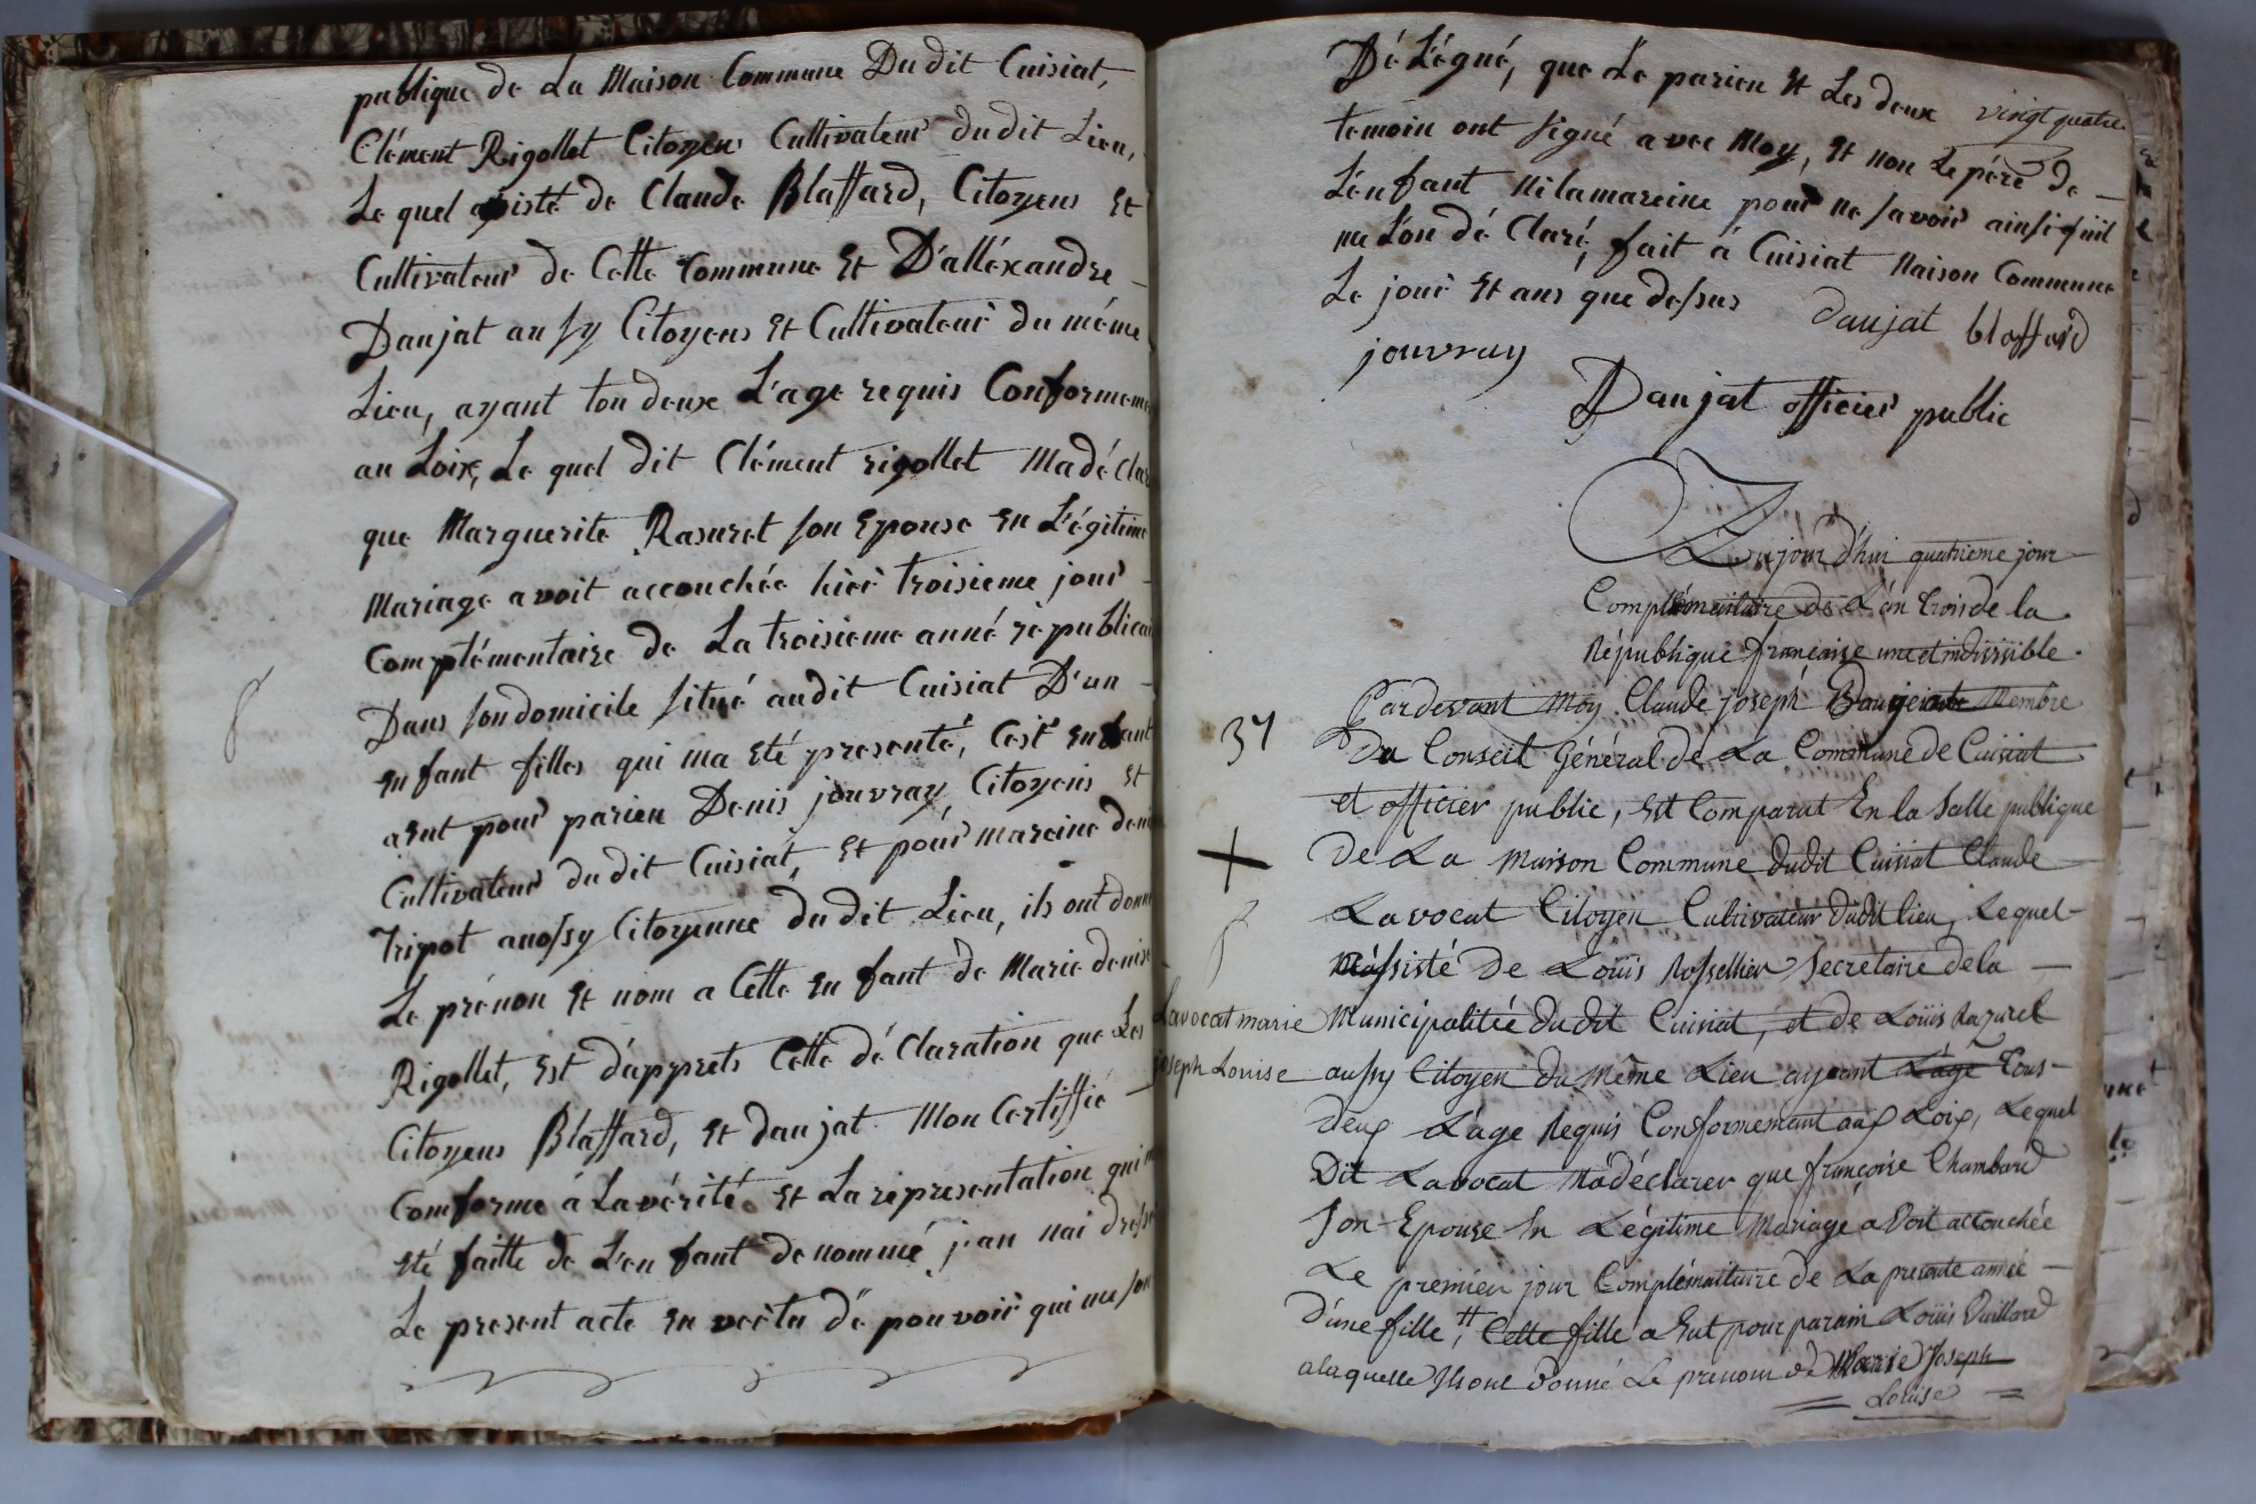 publique de La Maison Commune Dudit Cuisiat,
Clément Rigollet Citoyens Cultivateur dudit Lieu,
Le quel asisté de Claude Blaffard, Citoyens Et
Cultivateur de Cette Commune Et D'alléxandre
Daujat aussy Citoyens Et Cultivateur du méme
Lieu, ayant tou deux L'age requis Conformeme
au Loix, Le quel dit Clément rigollet Madé Clar
que Marguerite Rasuret son Epouse en L'égitime
Mariage avoit accouchée hier troisieme jour
Complémentaire de La troisieme anné républicai
Dans son domicile situé audit Cuisiat D'un
enfant filles qui ma eté presenté, C'est enfant
a eut pour parien Denis jouvray, Citoyens Et
Cultivateur dudit Cuisiat, Et pour mareine deni
tripot aussy Citoyenne dudit Lieu, ils ont donn
Le prénon Et nom a Cette enfant de Marie denise
Rigollet, Est d'apprets Cette dé Claration que Les
Citoyens Blaffard, Et daujat Mon Certiffié
Conforme á La vérité Et La représentation qui m
eté faitte de L'enfant denommé j'an nai dresse
Le present acte en vertu dé pouvoir qui me son
vingt quatre
Dé L'égué, que Le parien Et Les deux
temoin ont signé avec Moy, Et non Le pére de
L'enfant ni lamareine pour ne savoir ainsi quil
me L'on dé Claré, fait á Cuisiat Maison Commune
Le jour Et ans que dessus daujat blaffard
jouvray
Daujat officier public
Aujourd'hui quatrieme jour
Complémentaire de L'an trois de la
République française une et indivisible.
Pardevant Moy Claude joseph Daujat Membre
37
Du Conseil Général de La Commune de Cuisiat
et officier public, Est Comparut En la Salle publique
De La Maison Commune dudit Cuisiat Claude
Lavocat Citoyen Cultivateur dudit lieu, Lequel
assisté De Loüis Rossellier Secretaire dela
Lavocat marie
joseph Louise
Municipalitée dudit Cuisiat, et de Loüis Razurel
aussy Citoyen du Même Lieu ayant L'age tous
deux L'age Requis Conformement aux Loix, Lequel
Dit Lavocat Madéclarer que françoise Chambard
Son Epouse En Légitime Mariage avoit accouchée
Le premier jour Complémentaire de La presente année
D'une fille, # Cette fille a Eut pour parain Loüis Vuillard
alaquelle Ils ont donné Le prenom de Marie Joseph
Louise